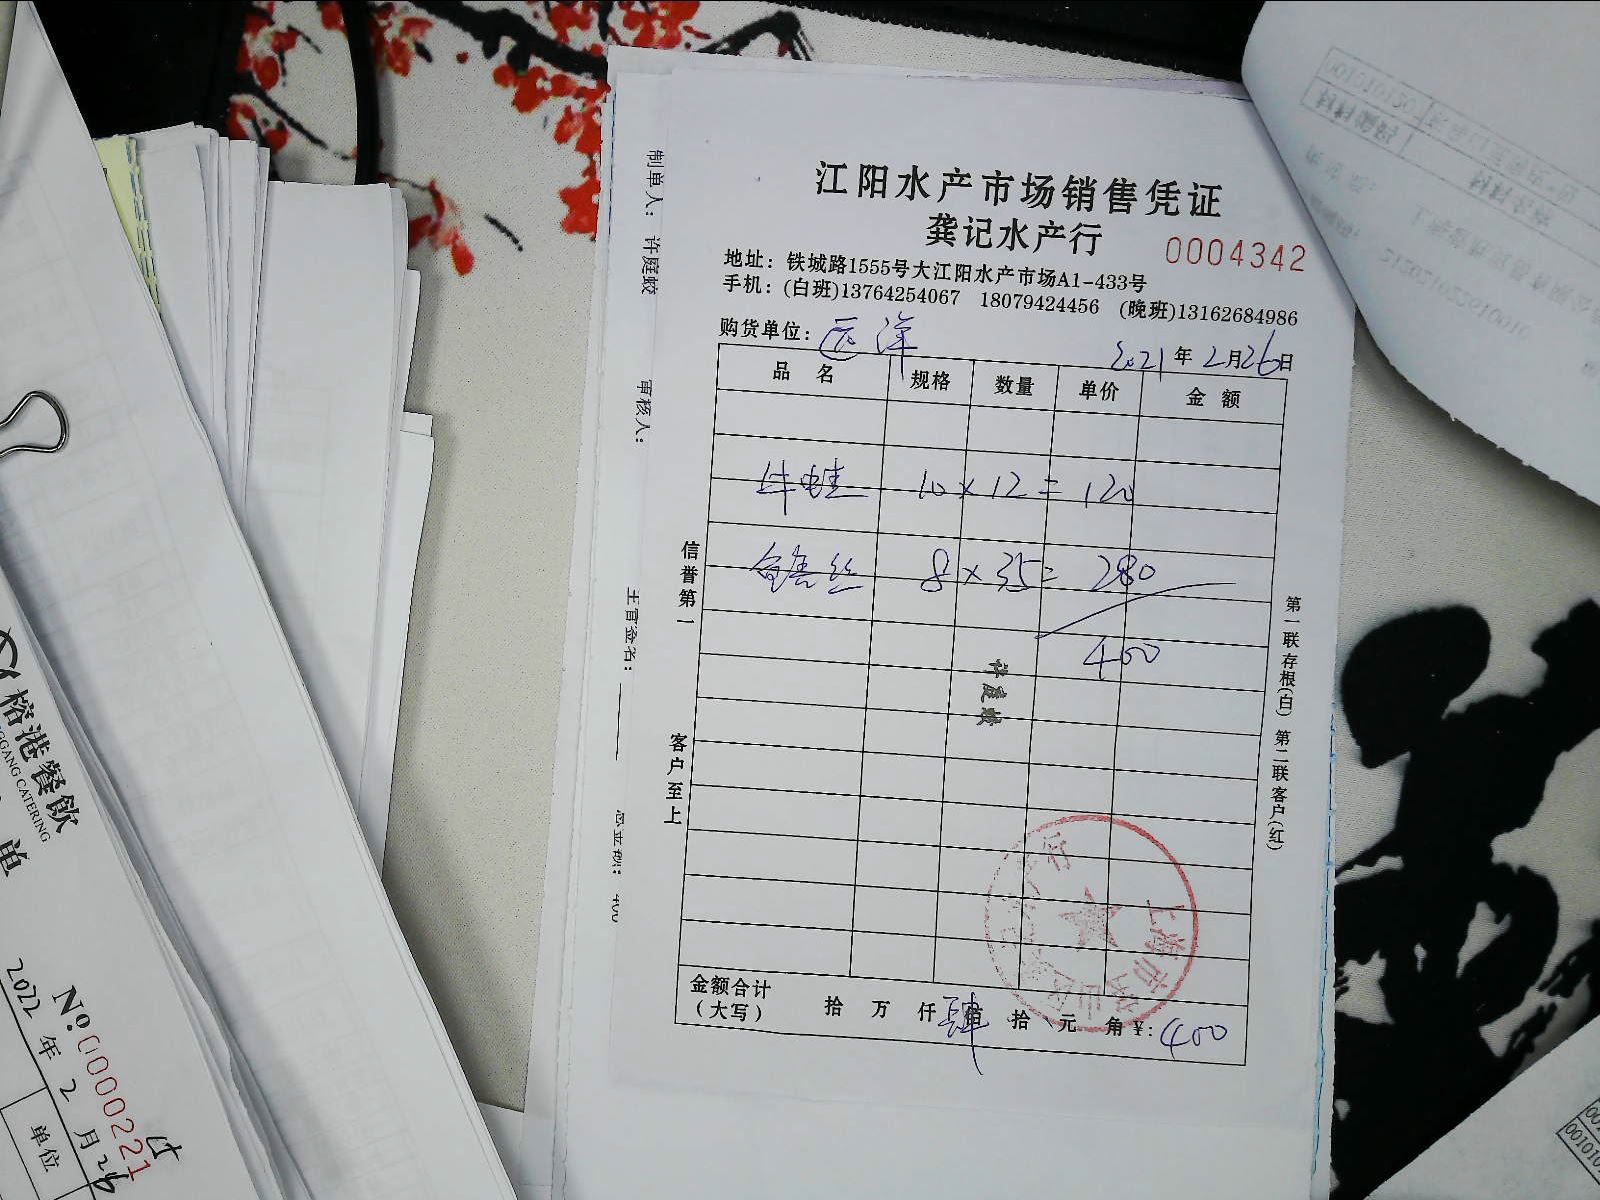 江阳水产市场销售凭证
龚记水产行
0004342
地址：铁城路1555号大江阳水产市场A1-433号
手机：(白班)13764254067 18079424456 (晚班)13162684986
购货单位：远洋 2021年2月26日
品名 规格 数量 单价 金额
牛蛙 10×12=120
鳝丝 8×35=280
400
许庭蛟
金额合计
(大写) 拾 万 仟肆佰 拾 元 角 ¥:400
信誉第一
客户至上
第一联存根(白) 第二联客户(红)
上海市宝山区
行
制单人：许庭蛟
审核人：
主管签名：
400
榕港餐飲
GGANG CATERING
单
No.0000221
2022年2月26
单位